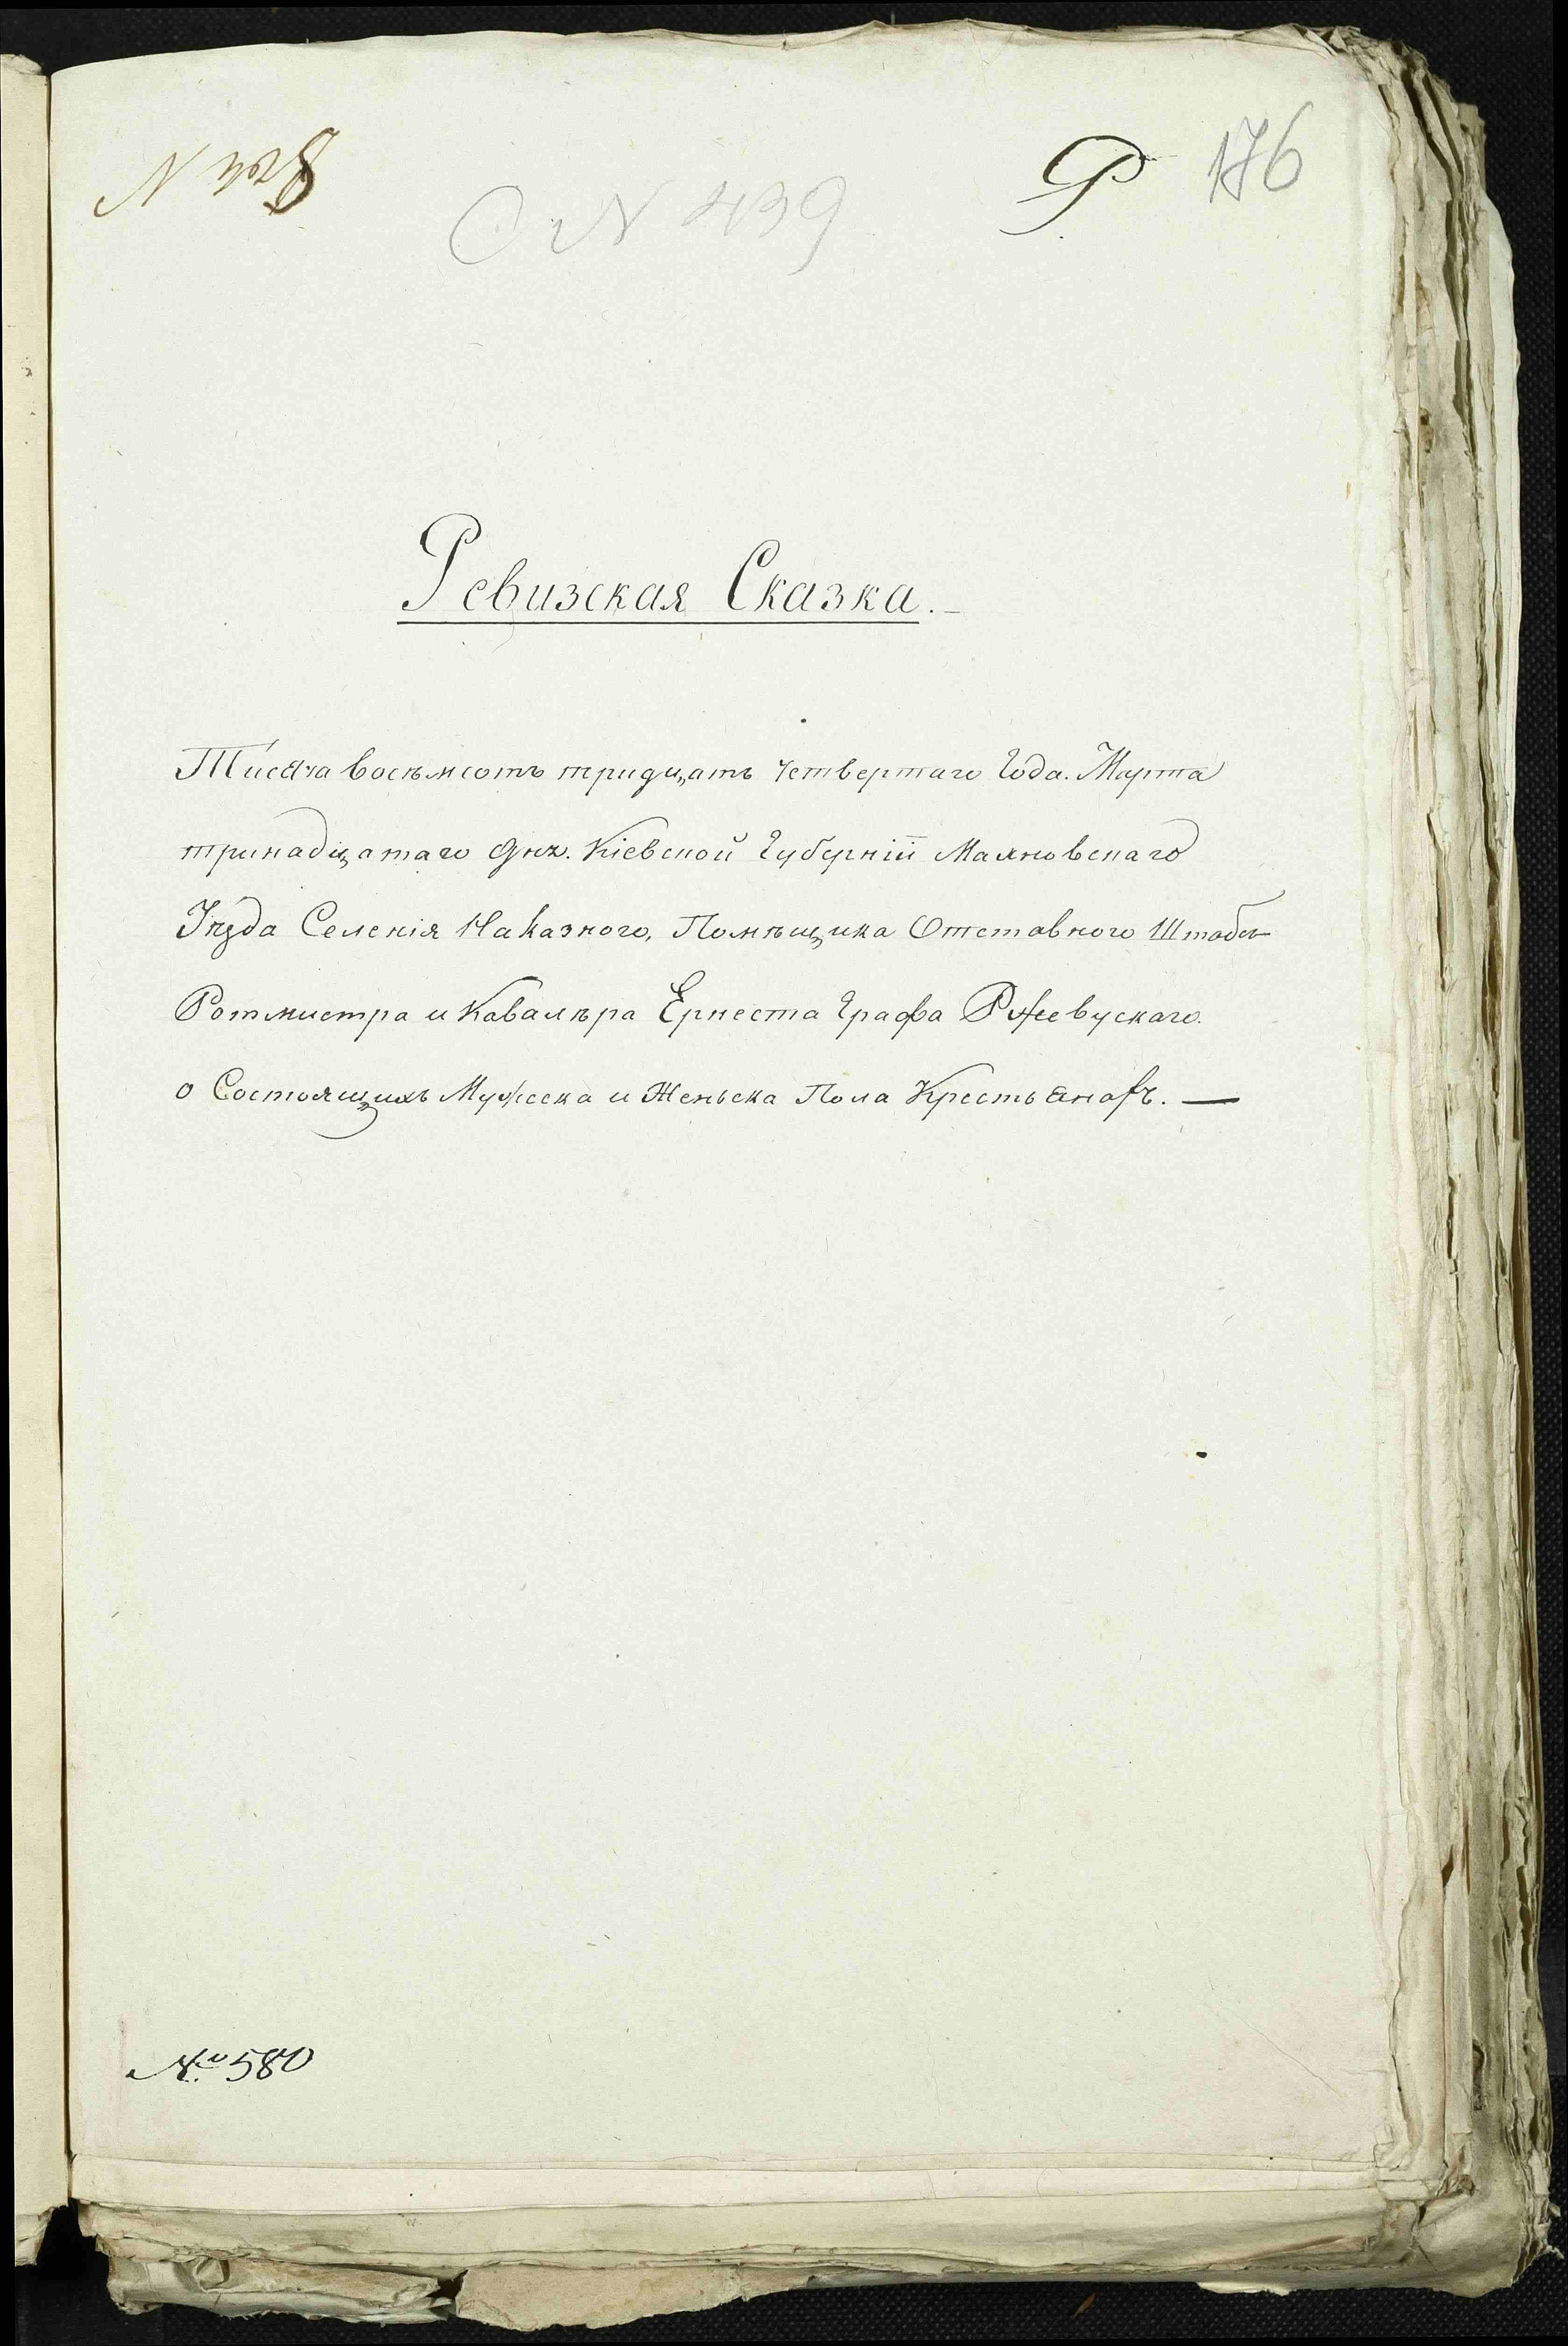 Р 176
N 439
Ревизская Сказка.
Тисяча восѣмсотъ тридцать четвертаго Года. Марта
тринадцатаго дня. Кіевской Губерніи Махновскаго
Уѣзда Селенія Наказного, Помѣщика Отставного Штабсъ
Ротмистра и Кавалѣра Ернеста Графа Ржевускаго.
о Состоящихъ Мужеска и Женьска Пола Крестьянафъ. —
№ 580